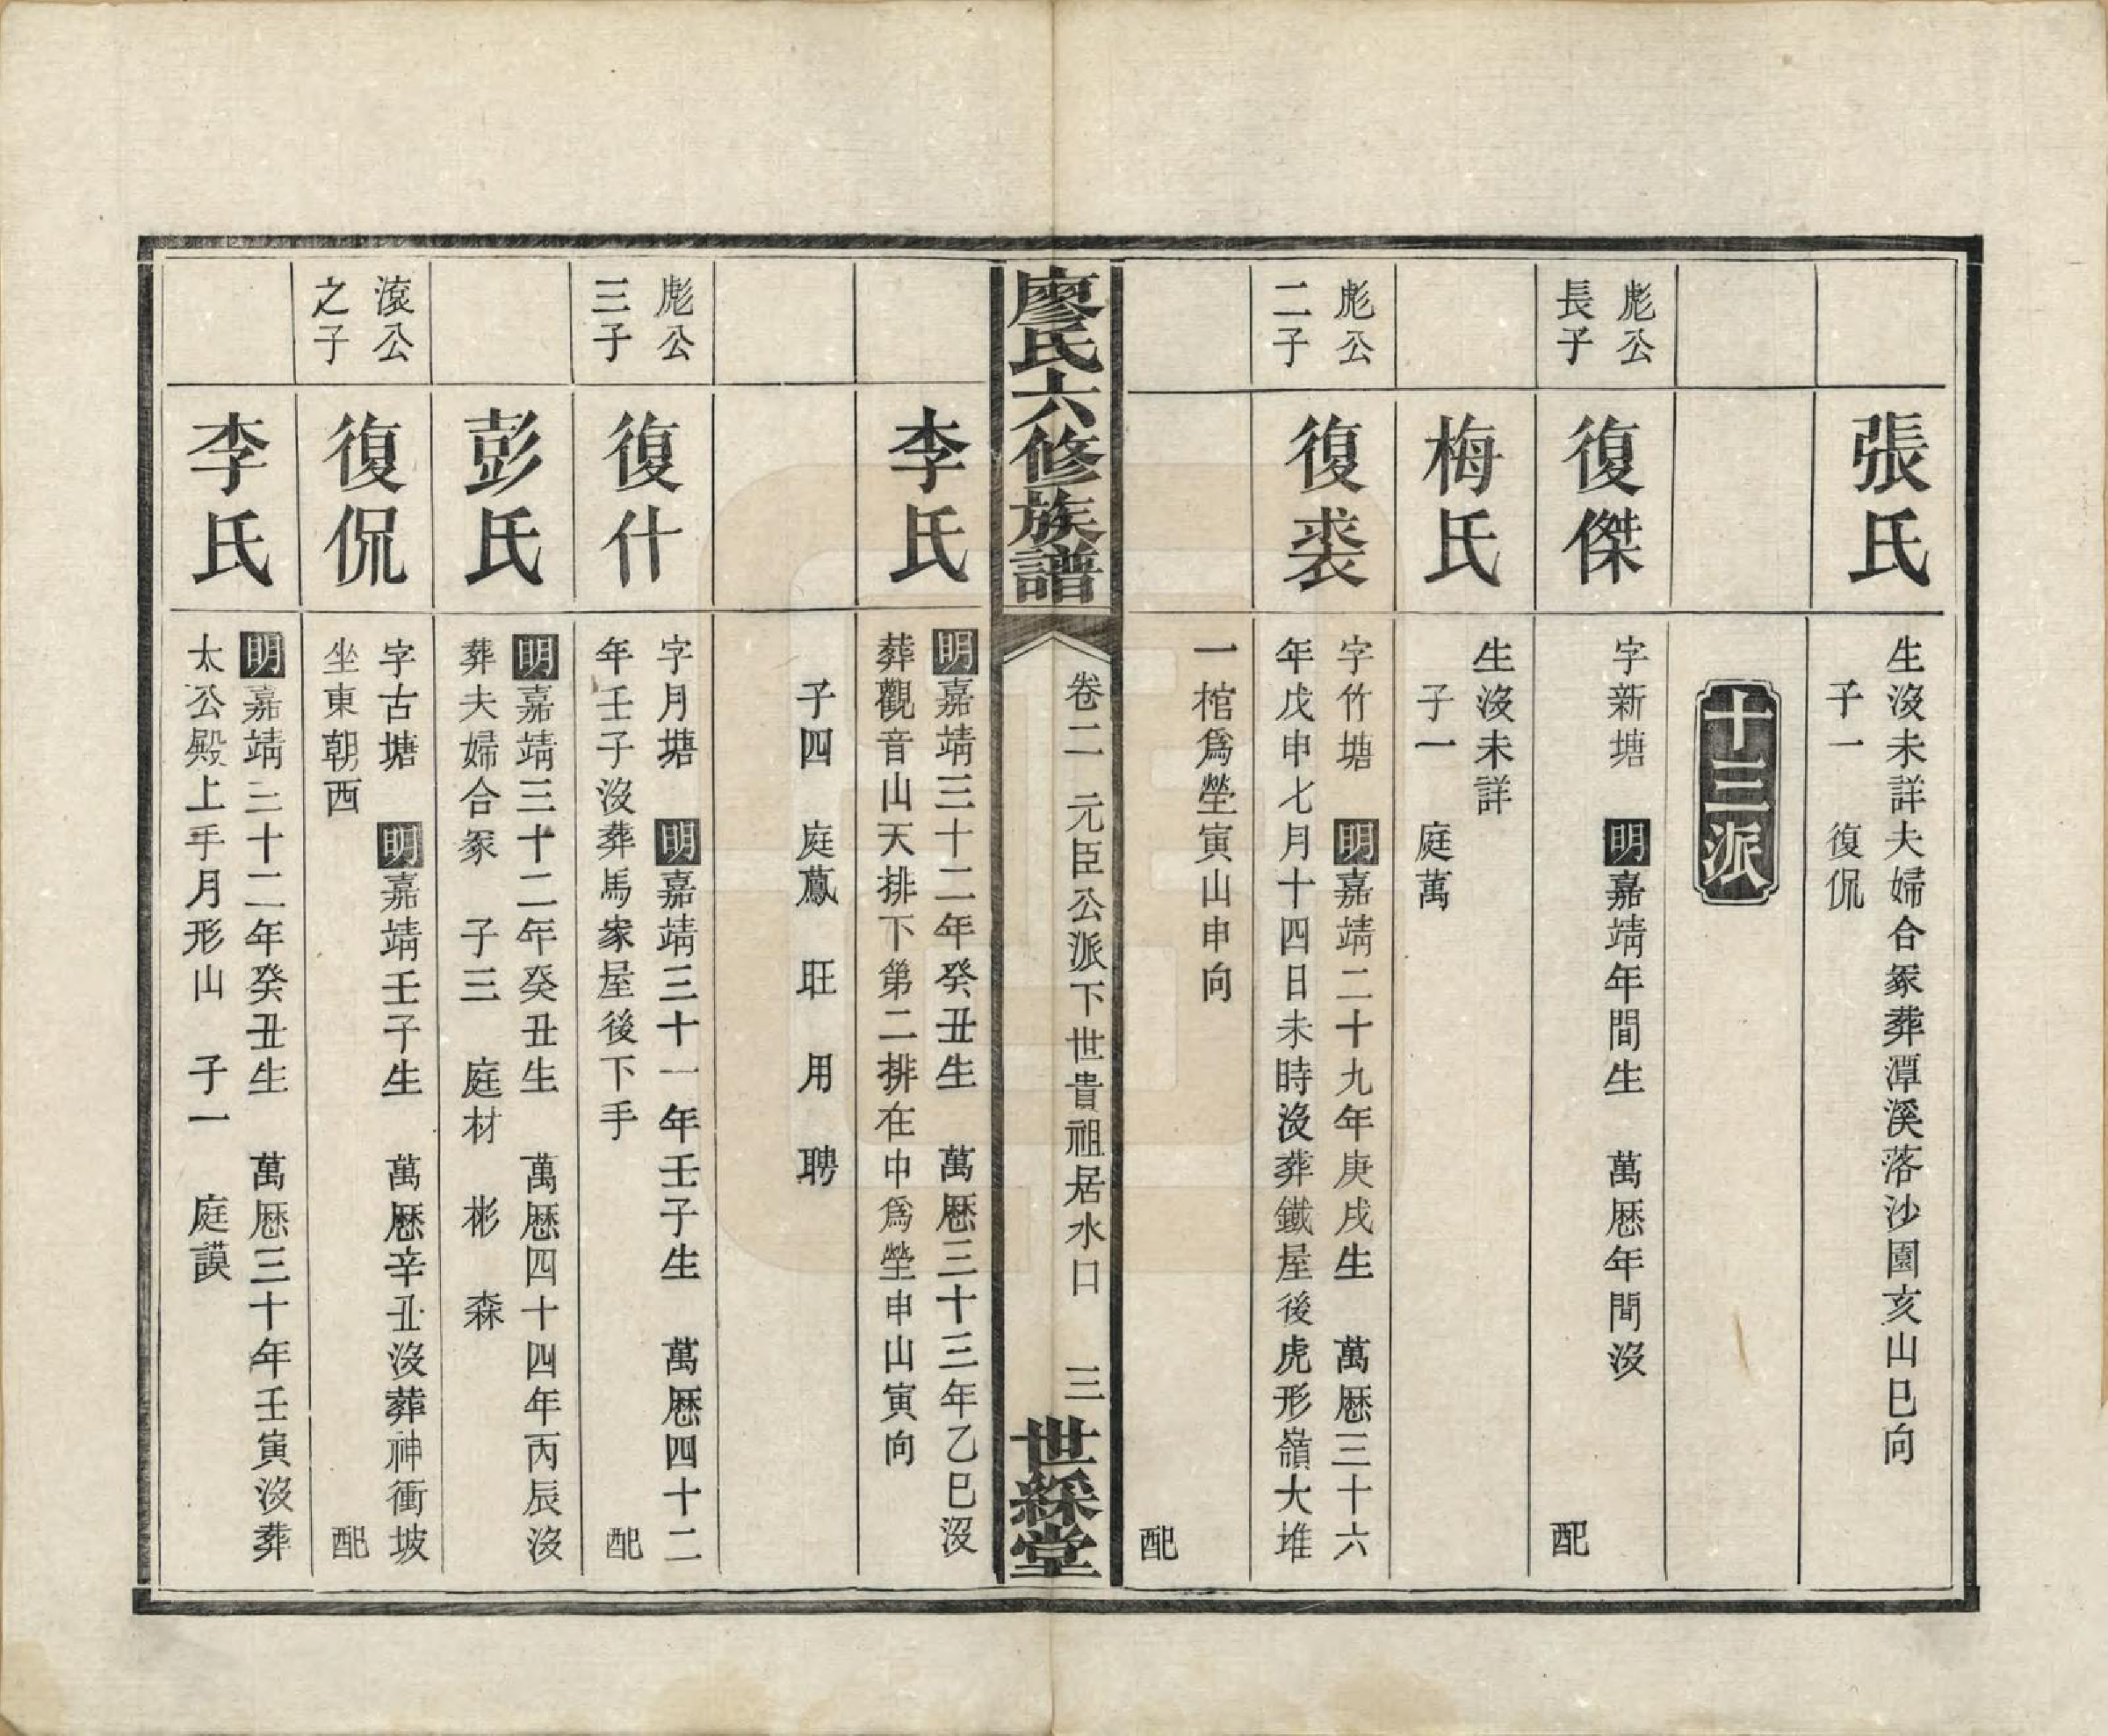 張氏
生沒未詳夫婦合冢葬潭溪落沙園亥山巳向
子一　復侃
十三派
彪公
長子
復傑
字新塘　明嘉靖年間生　萬厯年間沒
配
梅氏
生沒未詳
子一　庭萬
彪公
二子
復裘
字竹塘　明嘉靖二十九年庚戌生　萬厯三十六
年戊申七月十四日未時沒葬鐵屋後虎形嶺大堆
一棺爲塋寅山申向
配
廖氏六修族譜
卷二　元臣公派下世貴祖居水口　三
世綵堂
李氏
明嘉靖三十二年癸丑生　萬厯三十三年乙巳沒
葬觀音山天排下第二排在中爲塋申山寅向
子四　庭鳳　旺　用　聘
彪公
三子
復什
字月塘　明嘉靖三十一年壬子生　萬厯四十二
年壬子沒葬馬家屋後下手
配
彭氏
明嘉靖三十二年癸丑生　萬厯四十四年丙辰沒
葬夫婦合冢　子三　庭材　彬　森
滾公
之子
復侃
字古塘　明嘉靖壬子生　萬厯辛丑沒葬神衝坡
坐東朝西
配
李氏
明嘉靖三十二年癸丑生　萬厯三十年壬寅沒葬
太公殿上手月形山　子一　庭謨